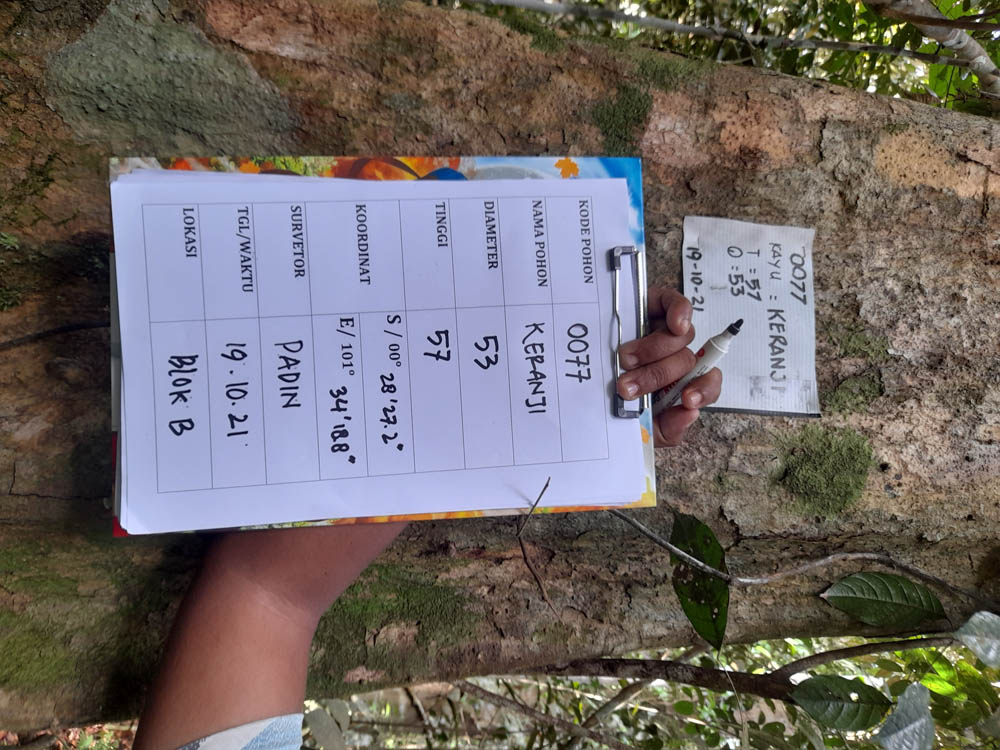 0077
KAYU = KERANJI
T = 57
Q = 53
19-10-21
KODE POHON 0077
NAMA POHON KERANJI
DIAMETER 53
TINGGI 57
KOORDINAT
S / 00° 28'27.2"
E/ 101° 34'18.8"
SURVETOR PADIN
TGL/WAKTU 19.10.21
LOKASI BLOK B